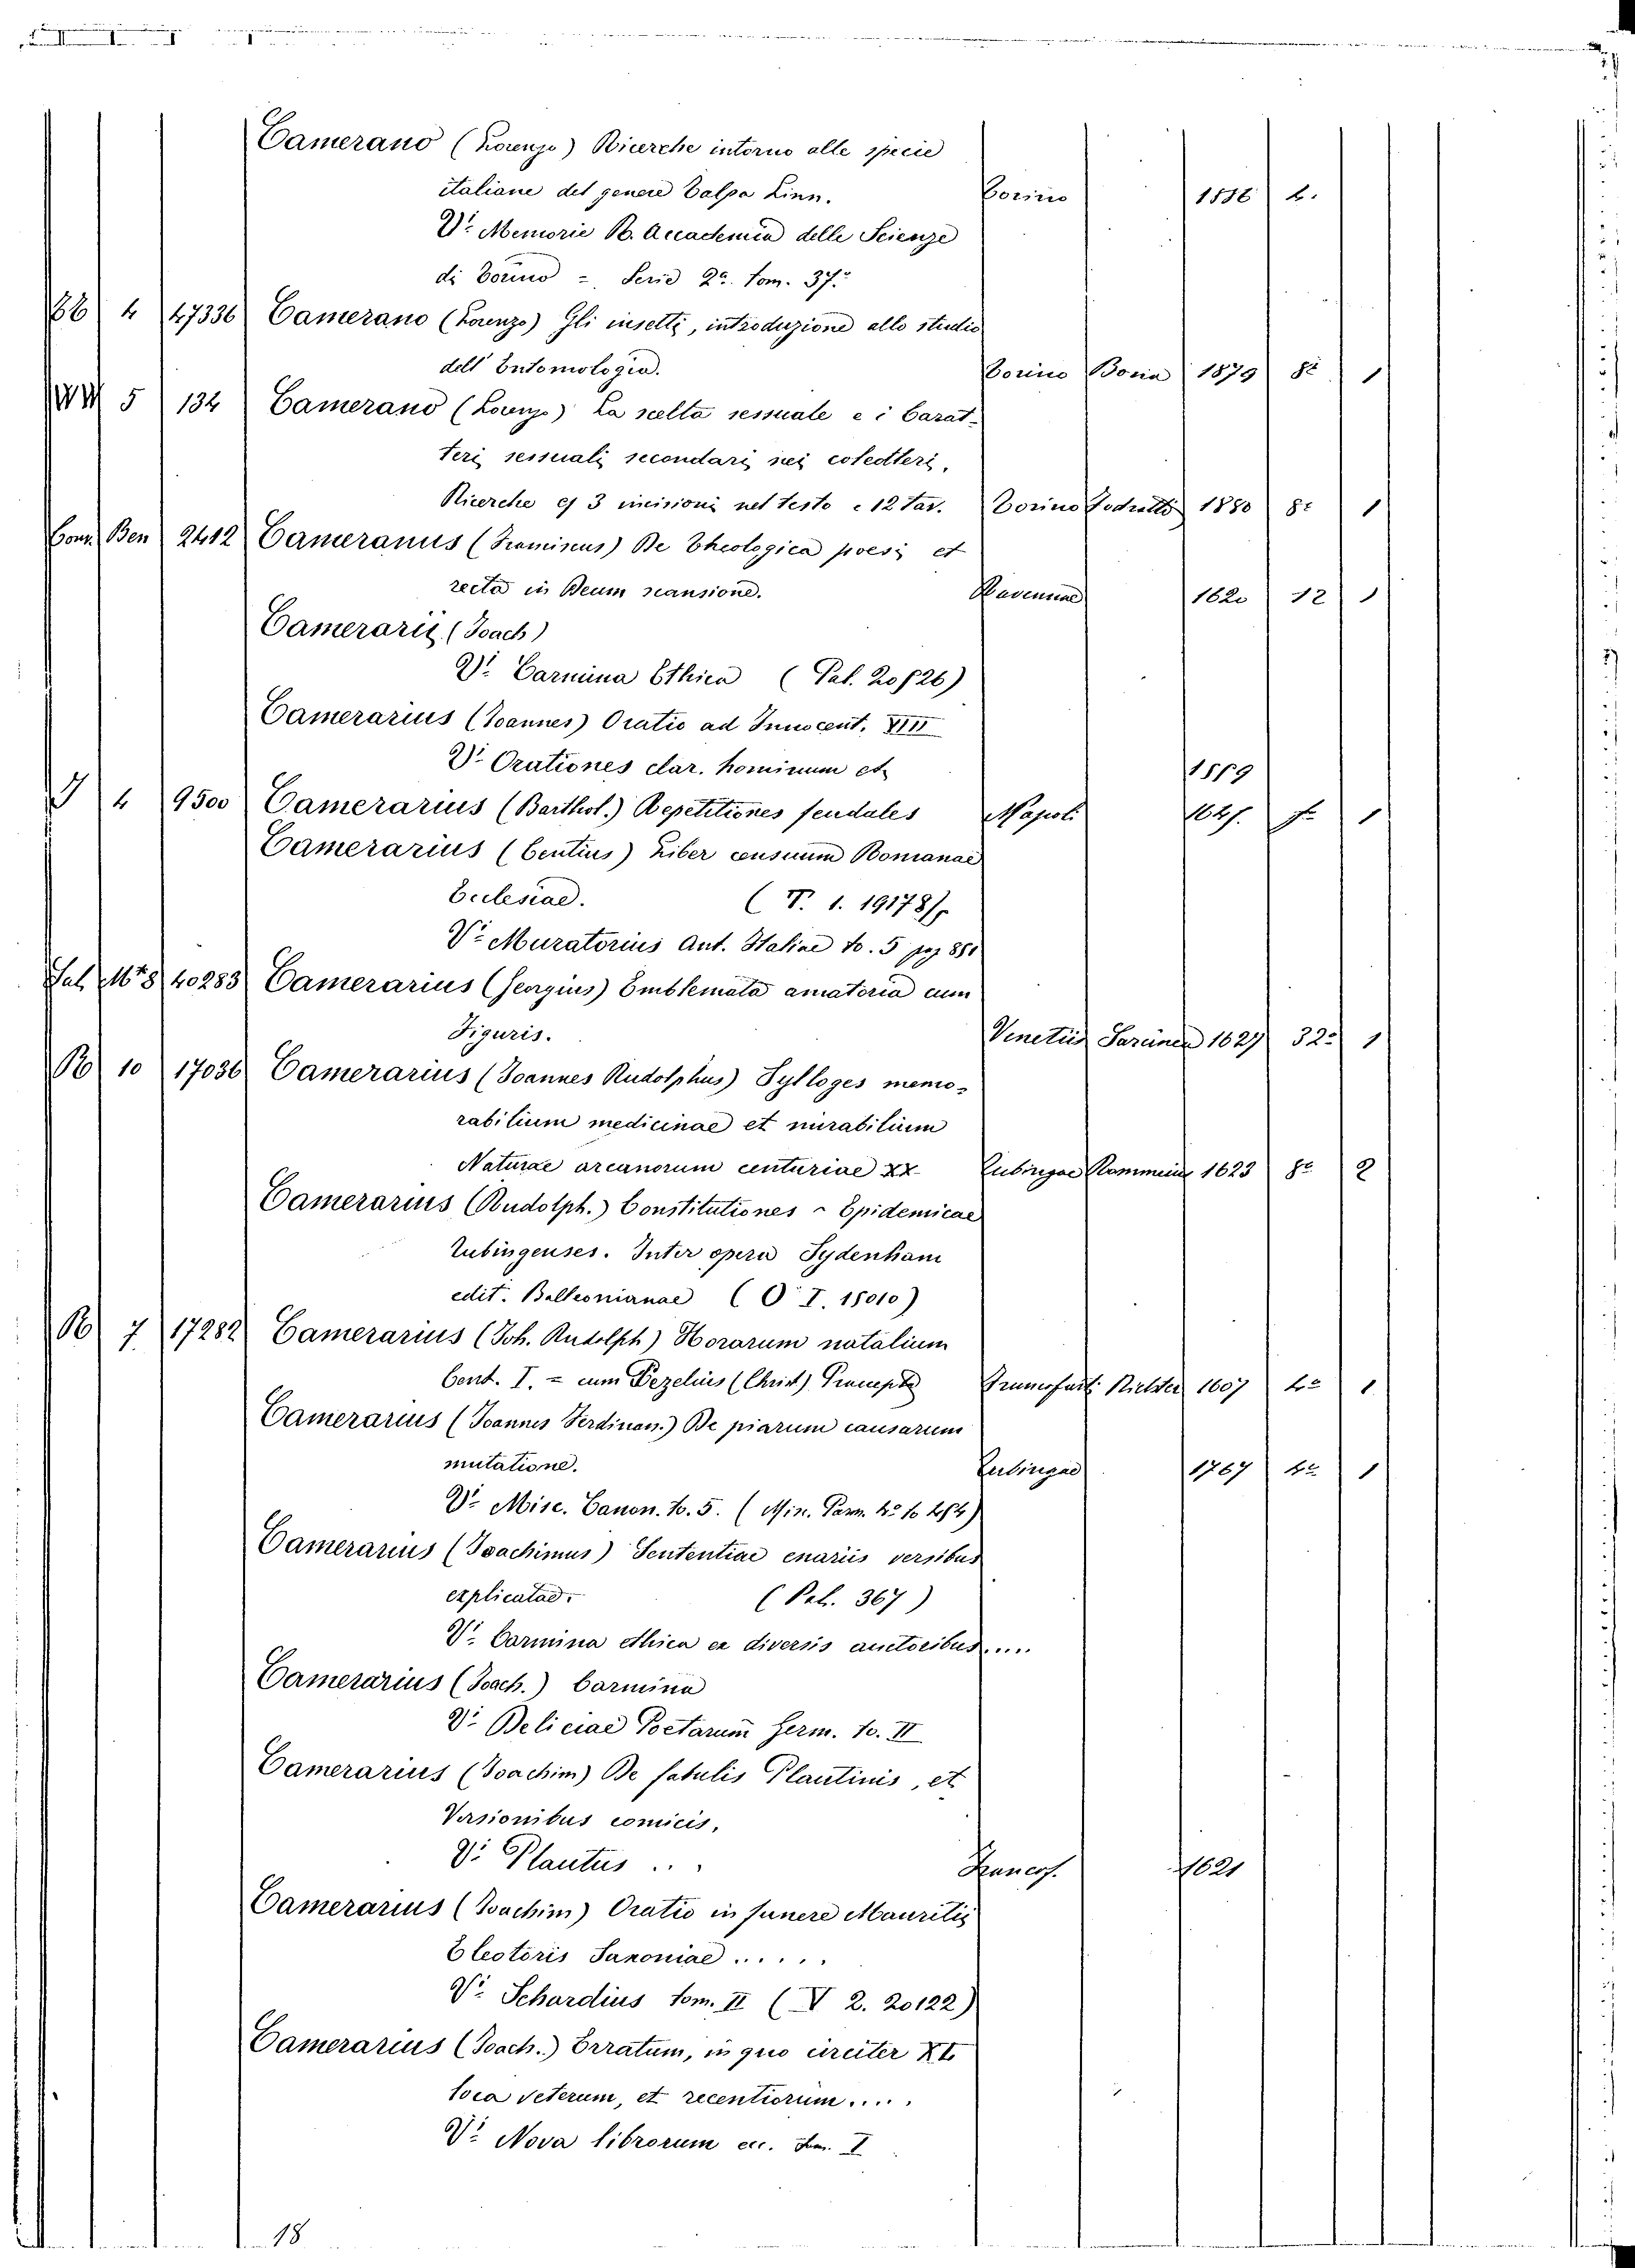 Camerano (Lorenzo) Ricerche intorno alle specie
italiane del genere Talpa Linn. Torino 1886 4.
Vi. Memorie R. Accademia delle Scienze
di Torino = Serie 2a. Tom. 37.o
BB 4 47336 Camerano (Lorenzo) Gli insetti, introduzione allo studio
dell' Entomologia. Torino Bona 1879 8o 1
5 134 Camerano (Lorenzo) La scelta sessuale e i Carat-
teri sessuali secondari nei coleotteri,
Ricerche es 3 incisioni nel testo e 12 Tav. Torino 1880 8o 1
Conv. Ben 2412 Cameranus (Hieronimus) De Theologica poesi et
recta in Deum scansione. Ravennae 1620 12 1
Camerarii (Joach)
Vi. Carmina Ethica (Pal. 20526)
Camerarius (Joannes) Oratio ad Innocent. VIII
Vi. Orationes clar. hominum et 1559
4 9500 Camerarius (Barthol.) Repetitiones feudales Napoli 1645. fo 1
Camerarius (Centius) Liber censuum Romanae
Ecclesiae. (T. 1. 19178)
Vi. Muratorius Ant. Italiae to. 5 pag 851
Sal. M. 8 40283 Camerarius (Georgius) Emblemata amatoria cum
Figuris. Venetiis Sarcinea 1627 32o 1
R 10 17036 Camerarius (Joannes Rudolphus) Sylloges memo-
rabilium medicinae et mirabilium
Naturae arcanorum centuriae XX Tubingae 1623 8o 2
Camerarius (Rudolph.) Constitutiones Epidemicae
Tubingenses. Inter opera Sydenham
edit. Balleonianae (O I. 15010)
R 7 17282 Camerarius (Joh. Rudolph) Horarum natalium
Cent. I. = cum Pezelius (Christ) Praecepta Francofurti Richter 1607 4o 1
Camerarius (Joannes Ferdinan.) De piarum causarum
mutatione. Tubingae 1767 4o 1
Vi. Misc. Canon. to. 5. (Min. Parm. 4o to 454)
Camerarius (Joachimus) Sententiae enariis versibus
explicatae. (Pal. 367)
Vi. Carmina ethica ex diversis auctoribus....
Camerarius (Joach.) Carmina
Vi. Deliciae Poetarum Germ. to. II
Camerarius (Joachim) De fabulis Plautinis, et
Versionibus comicis,
Vi. Plautus ... Francof. 1621
Camerarius (Joachim) Oratio in funere Mauritii
Electoris Saxoniae .....
Vi. Schardius tom. II (V 2. 20122)
Camerarius (Joach.) Erratum, in quo circiter XL
loca veterum, et recentiorum.....
Vi. Nova librorum ecc. Tom. I
18